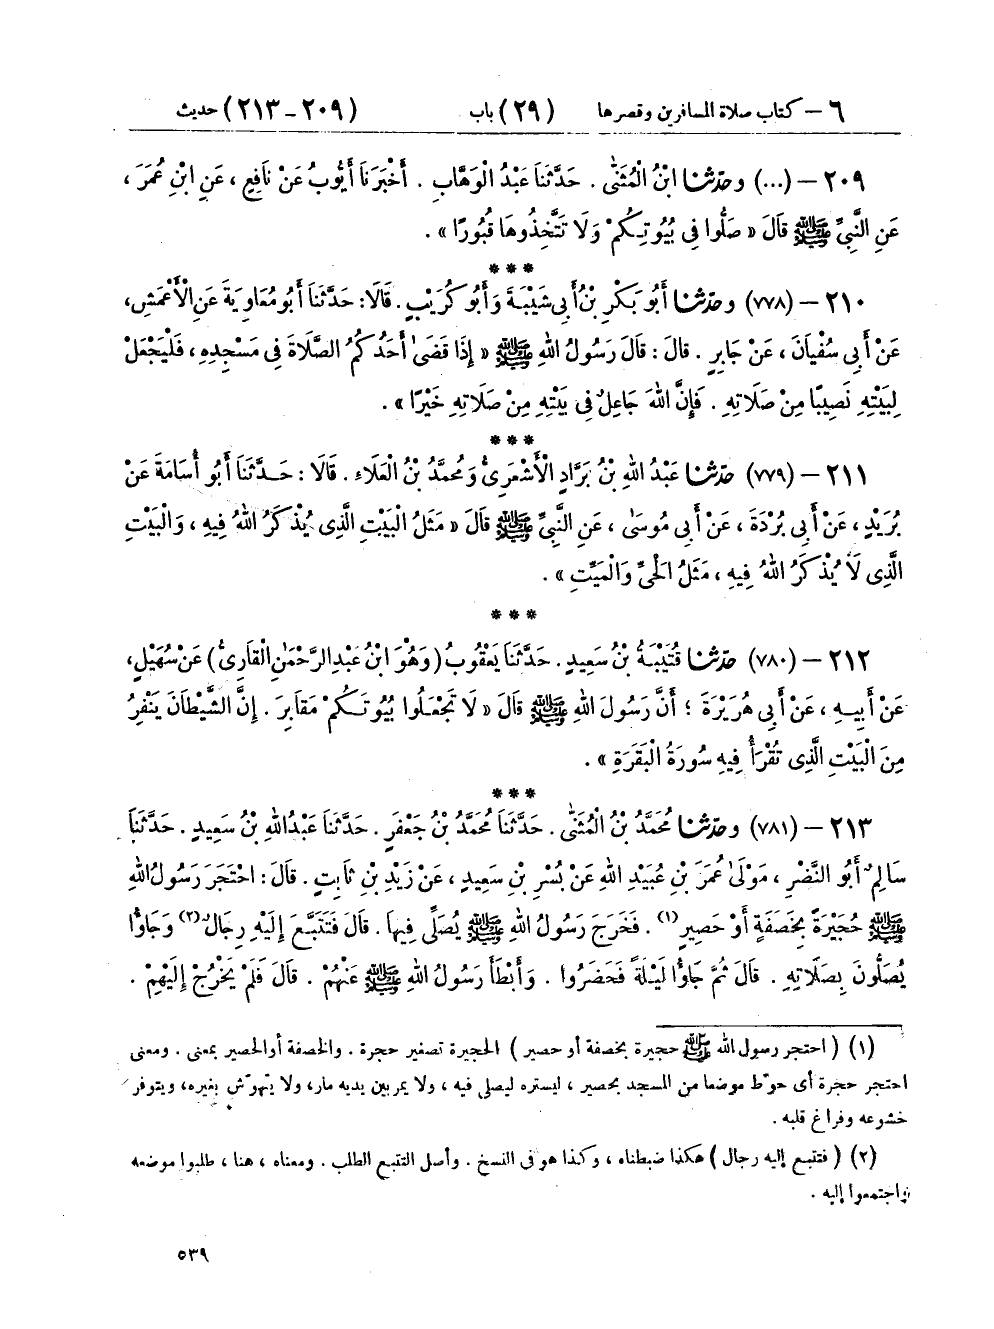 ٦ — كتاب صلاة المسافرين وقصرها (٢٩) باب (٢٠٩ - ٢١٣) حديث
٢٠٩ — (...) وحدّثنا ابْنُ الْمُثَنَّىٰ . حَدَّثَنَا عَبْدُ الْوَهَّابِ . أَخْبَرَنَا أَيُّوبُ عَنْ نَافِعٍ ، عَنِ ابْنِ عُمَرَ ،
عَنِ النَّبِيِّ ﷺ قَالَ « صَلُّوا فِي بُيُوتِكُمْ وَلَا تَتَّخِذُوهَا قُبُورًا » .
***
٢١٠ — (٧٧٨) وحدّثنا أَبُو بَكْرِ بْنُ أَبِي شَيْبَةَ وَأَبُو كُرَيْبٍ . قَالَا : حَدَّثَنَا أَبُو مُعَاوِيَةَ عَنِ الْأَعْمَشِ ،
عَنْ أَبِي سُفْيَانَ ، عَنْ جَابِرٍ . قَالَ : قَالَ رَسُولُ اللهِ ﷺ « إِذَا قَضَىٰ أَحَدُكُمُ الصَّلَاةَ فِي مَسْجِدِهِ ، فَلْيَجْعَلْ
لِبَيْتِهِ نَصِيبًا مِنْ صَلَاتِهِ . فَإِنَّ اللهَ جَاعِلٌ فِي بَيْتِهِ مِنْ صَلَاتِهِ خَيْرًا » .
***
٢١١ — (٧٧٩) حدّثنا عَبْدُ اللهِ بْنُ بَرَّادٍ الْأَشْعَرِيُّ وَمُحَمَّدُ بْنُ الْعَلَاءِ . قَالَا : حَدَّثَنَا أَبُو أُسَامَةَ عَنْ
بُرَيْدٍ ، عَنْ أَبِي بُرْدَةَ ، عَنْ أَبِي مُوسَىٰ ، عَنِ النَّبِيِّ ﷺ قَالَ « مَثَلُ الْبَيْتِ الَّذِي يُذْكَرُ اللهُ فِيهِ ، وَالْبَيْتِ
الَّذِي لَا يُذْكَرُ اللهُ فِيهِ ، مَثَلُ الْحَيِّ وَالْمَيِّتِ » .
***
٢١٢ — (٧٨٠) حدّثنا قُتَيْبَةُ بْنُ سَعِيدٍ . حَدَّثَنَا يَعْقُوبُ (وَهُوَ ابْنُ عَبْدِ الرَّحْمَٰنِ الْقَارِيُّ) عَنْ سُهَيْلٍ ،
عَنْ أَبِيهِ ، عَنْ أَبِي هُرَيْرَةَ ؛ أَنَّ رَسُولَ اللهِ ﷺ قَالَ « لَا تَجْعَلُوا بُيُوتَكُمْ مَقَابِرَ . إِنَّ الشَّيْطَانَ يَنْفِرُ
مِنَ الْبَيْتِ الَّذِي تُقْرَأُ فِيهِ سُورَةُ الْبَقَرَةِ » .
***
٢١٣ — (٧٨١) وحدّثنا مُحَمَّدُ بْنُ الْمُثَنَّىٰ . حَدَّثَنَا مُحَمَّدُ بْنُ جَعْفَرٍ . حَدَّثَنَا عَبْدُ اللهِ بْنُ سَعِيدٍ . حَدَّثَنَا
سَالِمٌ أَبُو النَّضْرِ ، مَوْلَىٰ عُمَرَ بْنِ عُبَيْدِ اللهِ عَنْ بُسْرِ بْنِ سَعِيدٍ ، عَنْ زَيْدِ بْنِ ثَابِتٍ . قَالَ : احْتَجَرَ رَسُولُ اللهِ
ﷺ حُجَيْرَةً بِخَصَفَةٍ أَوْ حَصِيرٍ (١) . فَخَرَجَ رَسُولُ اللهِ ﷺ يُصَلِّي فِيهَا . قَالَ فَتَتَبَّعَ إِلَيْهِ رِجَالٌ (٢) وَجَاؤُا
يُصَلُّونَ بِصَلَاتِهِ . قَالَ ثُمَّ جَاؤُا لَيْلَةً فَحَضَرُوا . وَأَبْطَأَ رَسُولُ اللهِ ﷺ عَنْهُمْ . قَالَ فَلَمْ يَخْرُجْ إِلَيْهِمْ .
(١) ( احتجر رسول الله ﷺ حجيرة بخصفة أو حصير ) الحجيرة تصغير حجرة . والخصفة أو الحصير بمعنى . ومعنى
احتجر حجرة أى حوّط موضعا من المسجد بحصير ، ليستره ليصلى فيه ، ولا يمر بين يديه مار، ولا يتهوّش بغيره، ويتوفر
خشوعه وفراغ قلبه .
(٢) ( فتتبع إليه رجال ) هكذا ضبطناه ، وكذا هو فى النسخ . وأصل التتبع الطلب . ومعناه ، هنا ، طلبوا موضعه
واجتمعوا إليه .
٥٣٩